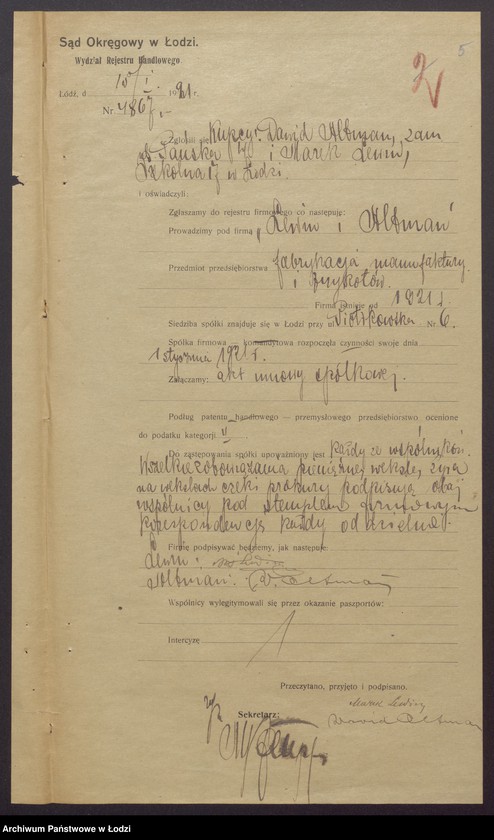 5
2
Sąd Okręgowy w Łodzi.
Wydział Rejestru Handlowego.
Łódź, d. 10/I. 1921 r.
Nr. 4867
Zgłosili się Kupcy: Dawid Altman, zam
Pańska i Marek Lewin,
Szkolna 17 w Łodzi.
i oświadczyli:
Zgłaszamy do rejestru firmowego co następuje:
Prowadzimy pod firmą „Lewin i Altman"
Przedmiot przedsiębiorstwa fabrykacja manufaktury
i trykotów.
Firma istnieje od 1921 r.
Siedziba spółki znajduje się w Łodzi przy ul Piotrkowska Nr 6.
Spółka firmowa — komandytowa rozpoczęła czynności swoje dnia
1 stycznia 1921 r.
Załączamy: akt umowy spółkowej.
Podług patentu handlowego — przemysłowego przedsiębiorstwo ocenione
do podatku kategorji II
Do zastępowania spółki upoważniony jest każdy ze wspólników.
Wszelkie zobowiązania pieniężne, weksle, żyra
na wekslach czeki prokury podpisują obaj
wspólnicy pod stemplem firmowym
korespondencję każdy oddzielnie.
Firmę podpisywać będziemy, jak następuje:
Lewin:
Altman: D. Altman
Wspólnicy wylegitymowali się przez okazanie paszportów:
Intercyzę
Przeczytano, przyjęto i podpisano.
Sekretarz:
Dawid Altman
Archiwum Państwowe w Łodzi